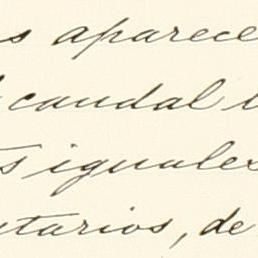 s aparece
caudal
s iguales
tarios, de